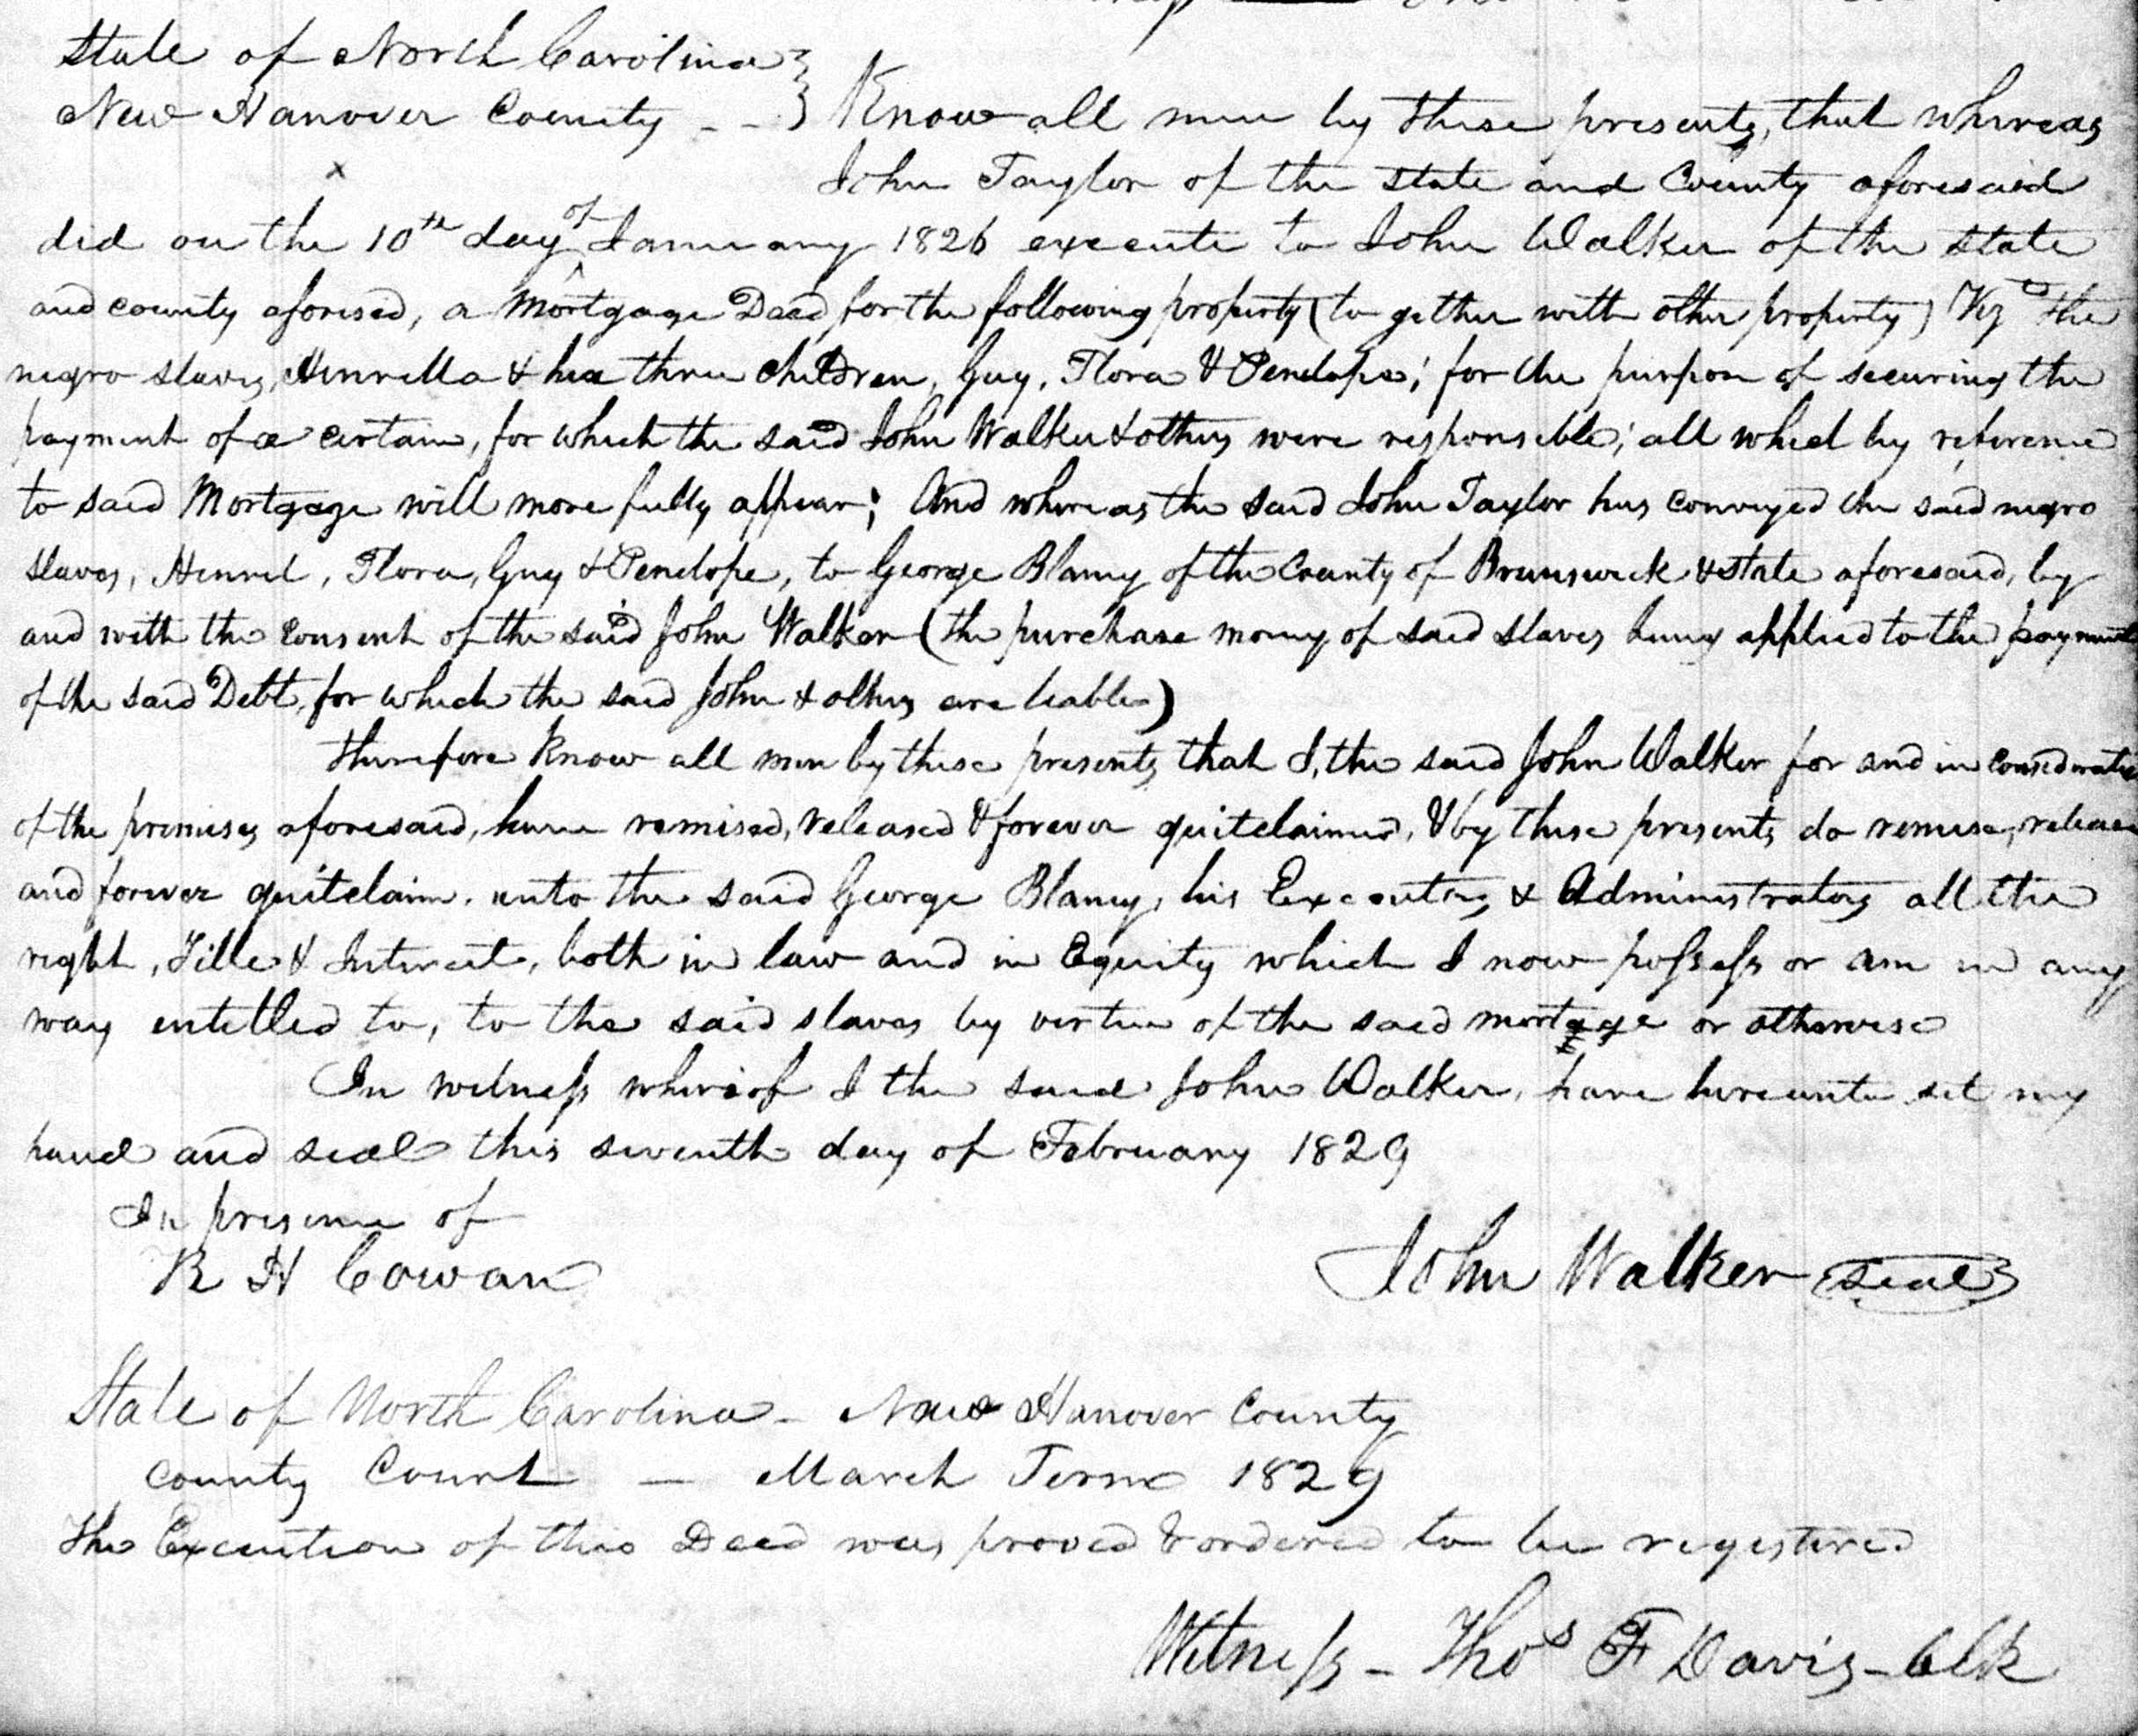 State of North Carolina }
New Hanover County - - } Know all men by these presents, that whereas
x
John Taylor of the State and County aforesaid
did on the 10th day of January 1826 execute to John Walker of the state
and county aforesd, a Mortgage Deed for the following property (to gether with other property) Viz the
negro slaves, Henrella & her three children, Guy, Flora & Penelope; for the purpose of securing the
payment of a certain, for which the said John Walker & others were responsible; all which by reference
to said Mortgage will more fully appear; And whereas the said John Taylor has conveyed the said negro
slaves, Flora, Guy & Penelope, to George Blaney of the County of Brunswick & state aforesaid, by
and with the consent of the said John Walker (the purchase money of said slaves being applied to the payment
of the said Debt, for which the said John & others are liable)
Therefore Know all men by these presents that I, the said John Walker for and in consideratio
of the premises aforesaid, have remised, released & forever quitclaimed, & by these presents do remise, release
and forever quitclaim, unto the said George Blaney, his Executors & Administrators all the
right, Title & Interest, both in law and in Equity which I now possess or am in any
way entitled to, to the said slaves by virtue of the said mortgage or otherwise
In witness whereof I the said John Walker, have hereunto set my
hand and seal this seventh day of February 1829
In presence of
R H Cowan
John Walker seal
State of North Carolina - New Hanover County
County Court - March Term 1829
The Execution of this Deed was proved & ordered to be registered
Witness - Thos F Davis - Clk